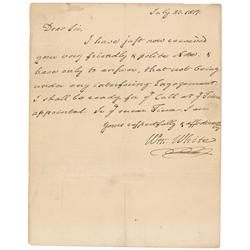 July 23. 1817.
Dear Sir,
I have just now received
your very friendly & polite Note: &
have only to answer, that not being
under any interfering Engagement,
I shall be ready for yr Call at ye Time
appointed. In ye mean Time I am
Yours respectfully & affectionately
Wm. White